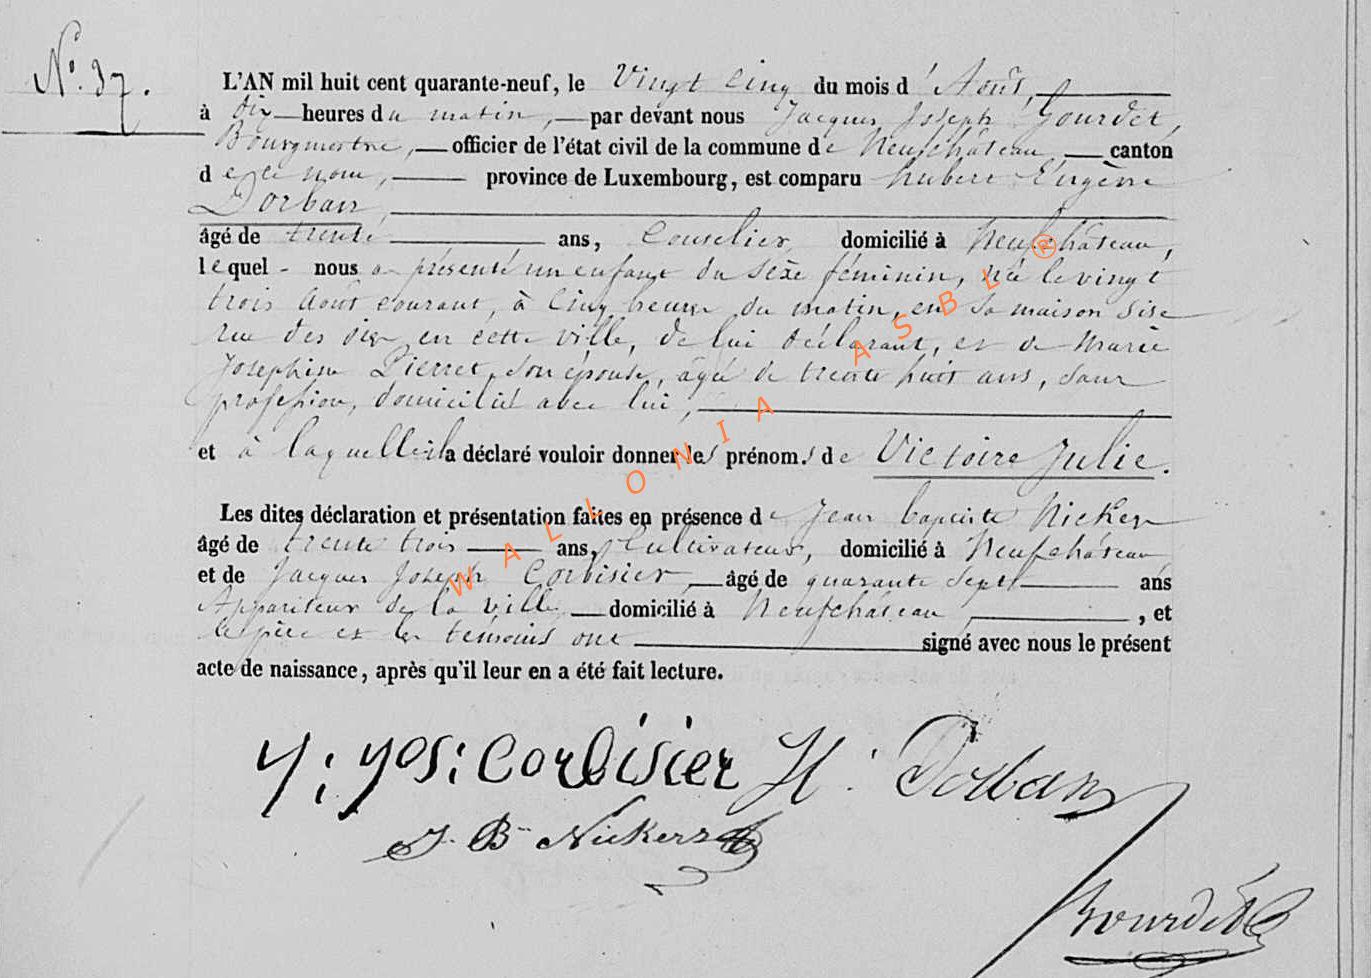 N° 37.
L'AN mil huit cent quarante-neuf, le Vingt Cinq du mois d'Août,
à dix heures du matin, par devant nous Jacques Joseph Gourdet,
Bourgmestre, officier de l'état civil de la commune de Neufchâteau canton
de ce nom, province de Luxembourg, est comparu hubert Eugène
Dorban,
âgé de trente ans, domicilié à Neufchâteau,
lequel nous a présenté un enfant du sexe féminin, née le vingt
trois Août courant, à Cinq heures du matin, en sa maison sise
rue des en cette ville, de lui déclarant, et de Marie
Josephine Pierret, son épouse, âgée de trente huit ans, sans
profession, domiciliée avec lui,
et à laquelle il a déclaré vouloir donner les prénoms de Victoire Julie.
Les dites déclaration et présentation faites en présence de Jean baptiste Nickers
âgé de trente trois ans, Cultivateur, domicilié à Neufchâteau
et de Jacques Joseph Corbisier, âgé de quarante sept ans
Appariteur de la ville domicilié à Neufchâteau, et
le père et les témoins ont signé avec nous le présent
acte de naissance, après qu'il leur en a été fait lecture.
WALLONIA ASBL ®
J: Jos: Corbisier H. Dorban
J. B. Nickers
Gourdet